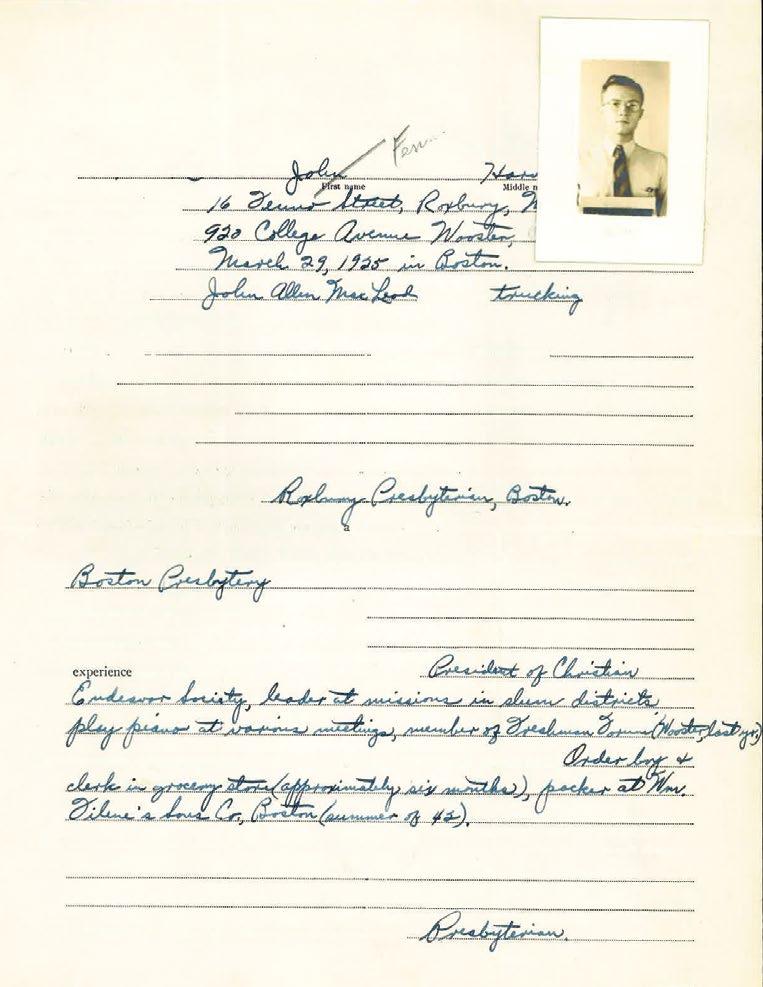 John Har
First name Middle n
16 Fenno Street, Roxbury, M
920 College Avenue Wooster,
March 29, 1925 in Boston.
John Allen MacLeod trucking
Roxbury Presbyterian, Boston.
a
Boston Presbytery
experience President of Christian
Endeavor Society, leader at missions in slum districts
play piano at various meetings, member of Freshman Forum (Wooster, last yr.)
Order boy &
clerk in grocery store (approximately six months), packer at Wm.
Filene's Sons Co., Boston (summer of 42).
Presbyterian.